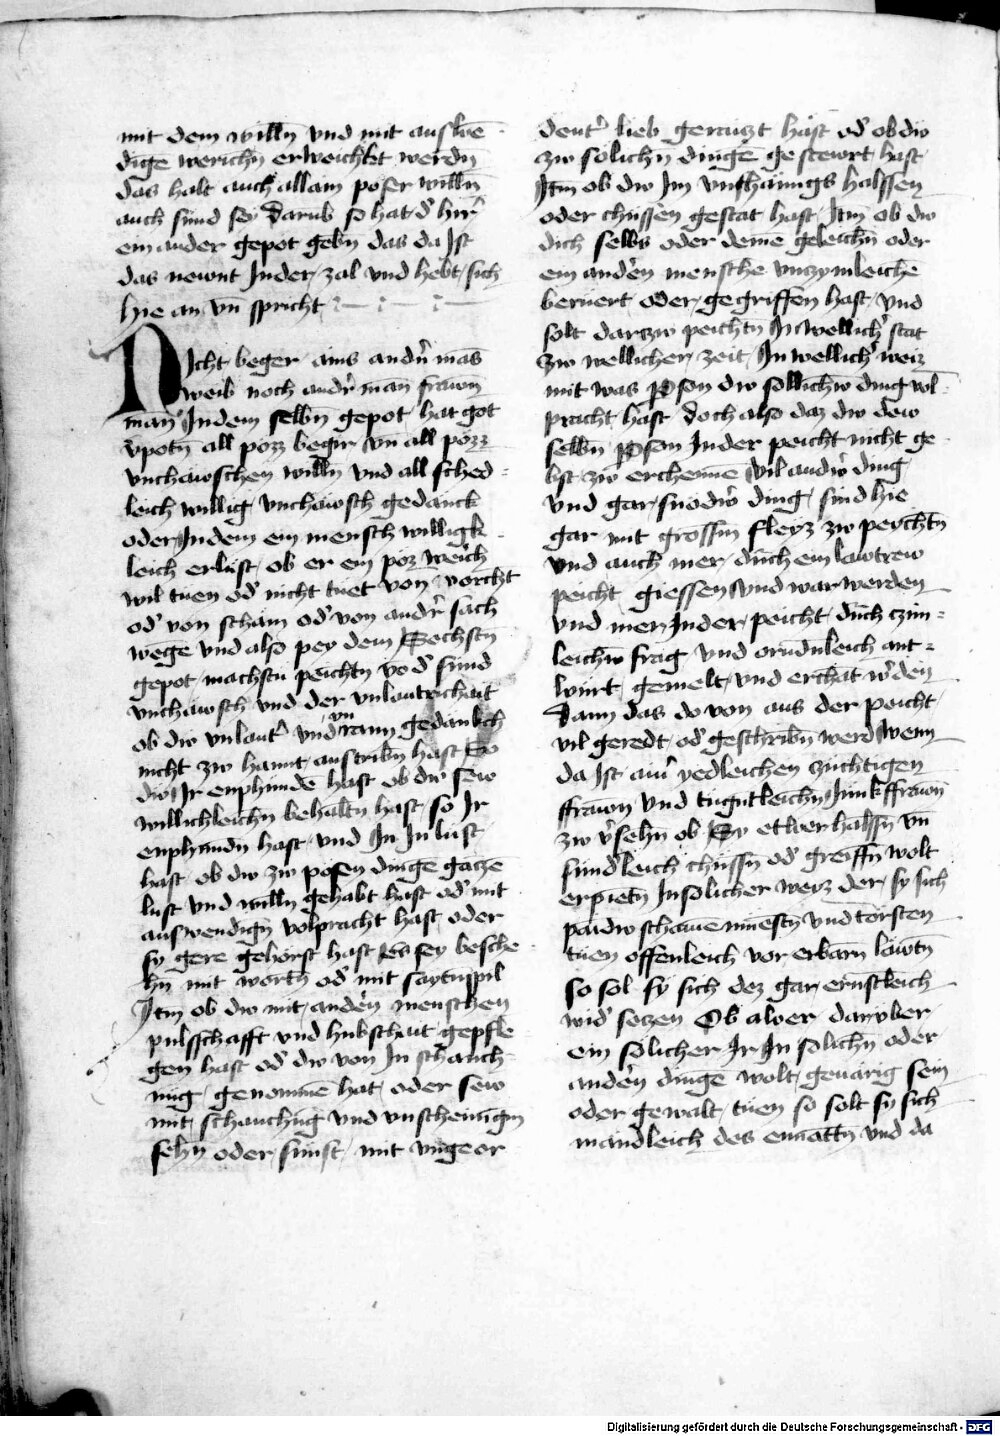 mit dem willn̄ vnd mit auswē
digē werichn̄ erweichkt werdn̄
das halt auch allain poser willn̄
auch sund sey darūb so hat d' hir'
ein ander gepot gebn̄ das da Ist
das newnt Inder zal vnd hebt sich
hie an vn̄ spricht
Nicht beger ains andn̄ mās
weib noch andr̄ man frawn̄
man̄ Indem selbn̄ gepot hat got
v̄potn̄ all pozz begir vn̄ all pozz
vnchawschen willn̄ vnd all sched
leich willig vnchawsch gedanck
oder Indem ein mensch willigk
leich erlust ob er ein poz werch
wil tuen od' nicht tuet von vorcht
od' von scham od' von andr̄ sach
wegē vnd also pey dem Sechstn̄
gepot machstu peichtn̄ vō d' sund
vnchawsch vnd der vnlautrchait
ob dw vnlaut' vnd vnrain gedankch
nicht zw hannt austribn̄ hast So
dw Ir enphundē hast ob dw sew
willichleichn̄ behaltn̄ hast so Ir
enphundn̄ hast vnd In In lust
hast ob dw zw posen dingē gatzē
lust vnd willn̄ gehabt hast od' mit
auswendign̄ volpracht hast oder
sy gere gehorst hast Es sey besche
hn̄ mit wortn̄ od' mit saytnspil
Itm̄ ob dw mit anden̄ menschen
pulsschafft vnd hubschait gepfle
gen hast od' dw von In schanch
nug genommē hat oder sew
mit schanchūg vnd vnscheinigm̄
sehn̄ oder sunst mit vngeor
dent' lieb geraitzt hast od' ob dw
zw solichn̄ dingē gestewrt hast
Itm̄ ob dw Im vnthainigs halssen
oder chussen gestat hast Itm̄ ob dw
dich selbs oder demē geleichn̄ oder
ein anden̄ mensche vnczymleichē
beruert oder gegriffen hast vnd
solt darzw peichtn̄ In wellich' stat
zw wellicher zeit In wellich' weiz
mit was Pson dw sollichw ding vol
pracht hast doch also daz dw dew
selbn̄ Pson Inder peicht nicht ge
bst zw erchennē Vil andrw̄ ding
vnd gar snodw̄ ding sind hie
gar mit grossm̄ fleyz zw peychtn̄
vnd auch mer durch ein lawtrew
peicht giessen vnd war werden
vnd mer Inder peicht durch czim
leichw̄ frag vnd ordnleich ant
wurt gemelt vnd erchāt w'den
Dann das do von aus der peicht
vil geredt od' geschribn̄ werd Wenn
da Ist ain' redleichen zuchtigen
ffrawn vnd tugntleichn̄ Junkffrawn̄
zw v'sehn ob Sy etwer halssn̄ vn̄
sundleich chussn̄ od' greiffn̄ wolt
erpietn̄ Insolicher weyz der sy sich
paidw schamē muestn̄ vnd torsten
tuen offenleich vor erbarn̄ lawtn̄
so sol sy sich dez gar ernstleich
wid' setzen Ob aber darvber
ein solicher Ir In solichn̄ oder
anden̄ dingē wolt geuarig sein
oder gewalt tuen so solt sy sich
mandleich des erwertn̄ vnd da
Digitalisierung gefördert durch die Deutsche Forschungsgemeinschaft - DFG